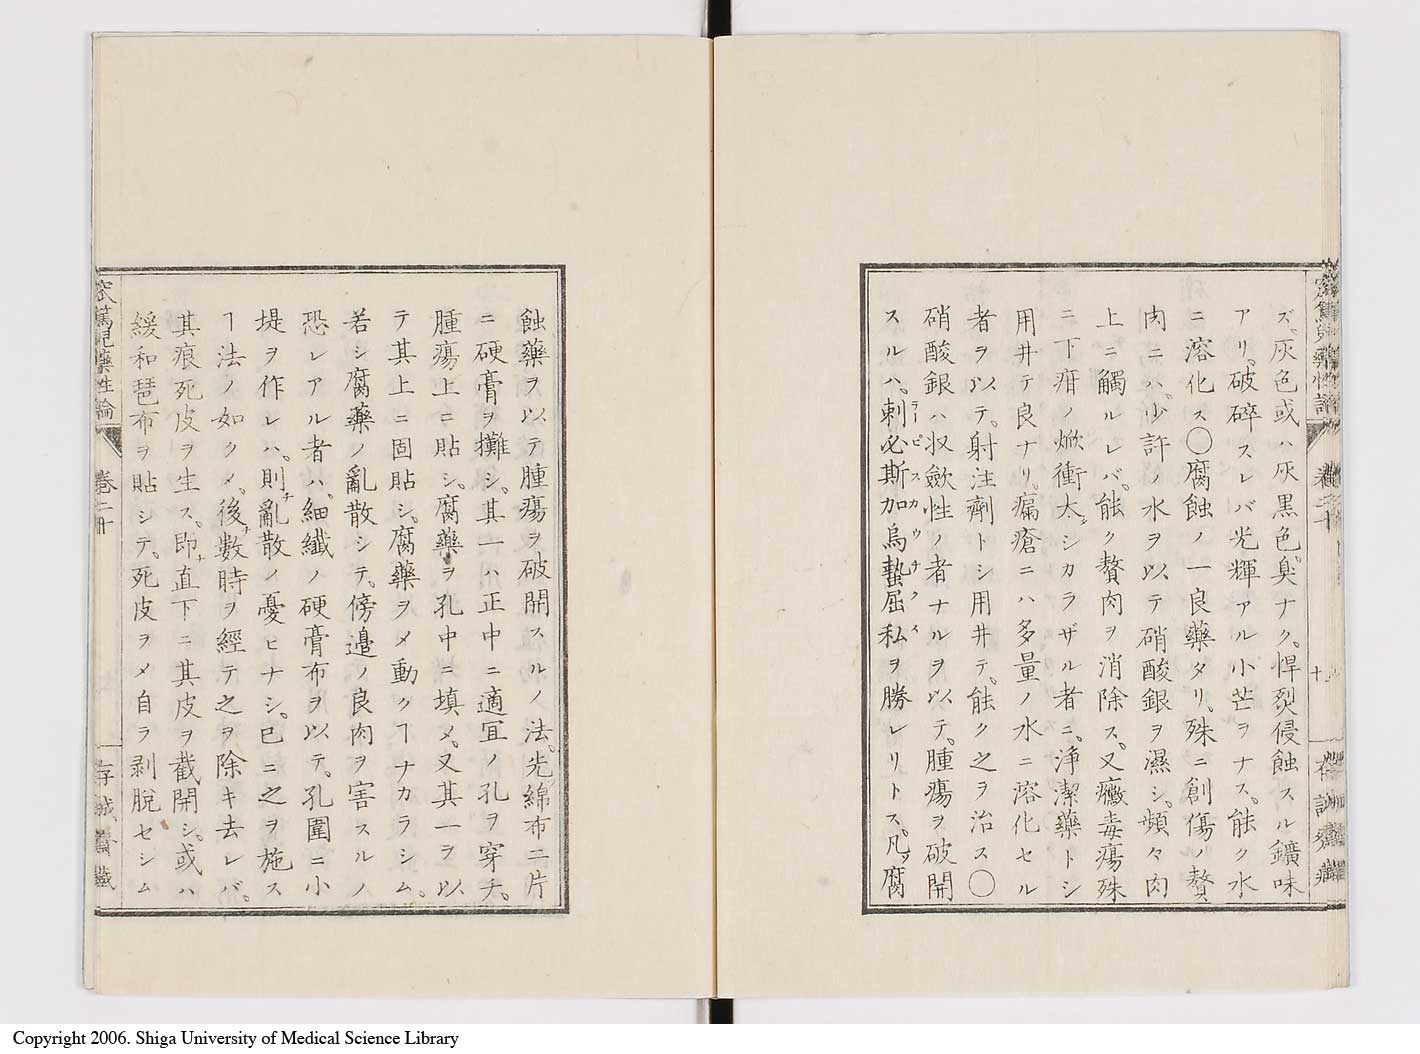 ズ。灰色或ハ灰黒色。臭ナク。悍烈侵蝕スル鑛味
アリ。破碎スレバ光輝アル小芒ヲナス。能ク水
ニ溶化ス〇腐蝕ノ一良藥タリ。殊ニ創傷ノ贅
肉ニハ。少許ノ水ヲ以テ硝酸銀ヲ濕シ。頻々肉
上ニ觸ルレバ。能ク贅肉ヲ消除ス。又黴毒瘍殊
ニ下疳ノ焮衝太シカラザル者ニ。淨潔藥トシ
用井テ良ナリ。瘺瘡ニハ多量ノ水ニ溶化セル
者ヲ以テ。射注劑トシ用井テ。能ク之ヲ治ス〇
硝酸銀ハ收斂性ノ者ナルヲ以テ。腫瘍ヲ破開
スルハ。刺必斯加烏蟄屈私ヲ勝レリトス。凡ソ腐
ラーピスカウチクイ
巻二十
蝕藥ヲ以テ腫瘍ヲ破開スルノ法。先綿布二片
ニ硬膏ヲ攤シ。其一ハ正中ニ適冝ノ孔ヲ穿チ。
腫瘍上ニ貼シ。腐藥ヲ孔中ニ填メ。又其一ヲ以
テ其上ニ固貼シ。腐藥ヲメ動クヿナカラシム。
若シ腐藥ノ亂散シテ。傍邉ノ良肉ヲ害スルノ
恐レアル者ハ。細纖ノ硬膏布ヲ以テ。孔圍ニ小
堤ヲ作レハ。則チ亂散ノ憂ヒナシ。已ニ之ヲ施ス
ヿ法ノ如クメ。後チ數時ヲ經テ之ヲ除キ去レバ。
其痕死皮ヲ生ス。即チ直下ニ其皮ヲ截開シ。或ハ
緩和琶布ヲ貼シテ。死皮ヲメ自ラ剥脫セシム
窊篤兒藥性論
巻二十
存誠齋藏
Copyright 2006. Shiga University of Medical Science Library